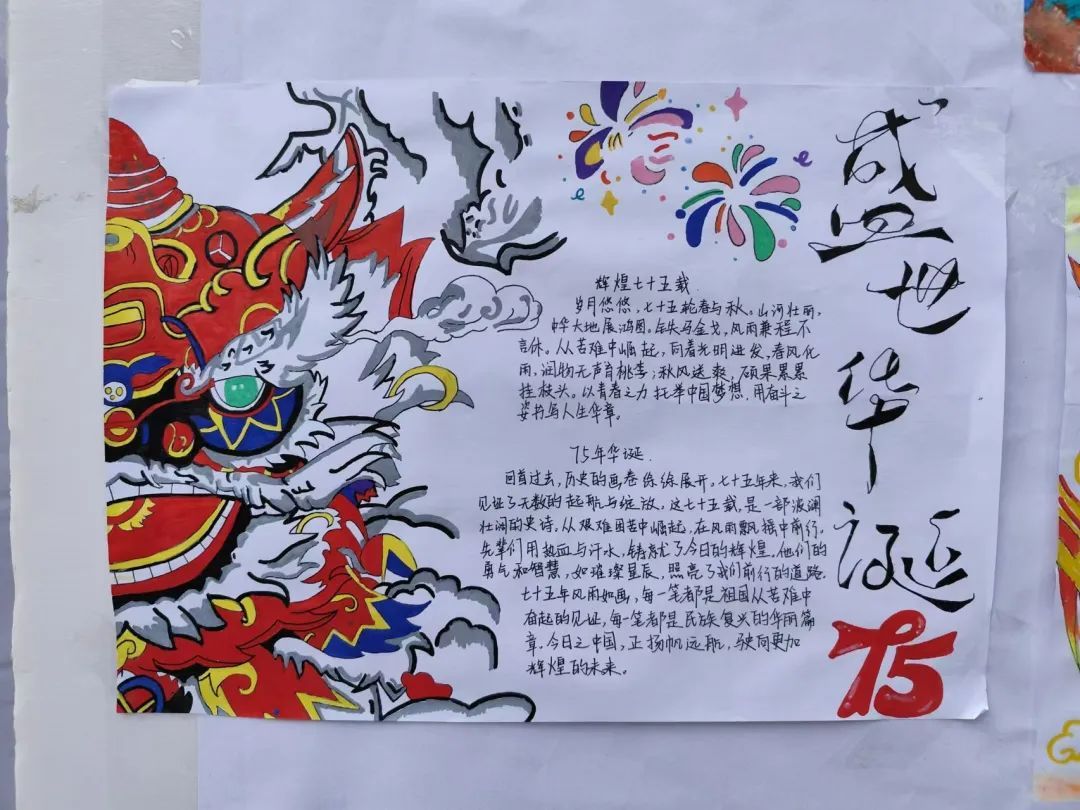 盛世华诞
75
辉煌七十五载
岁月悠悠，七十五轮春与秋。山河壮丽，
中华大地展鸿图。铁马金戈，风雨兼程不
言休。从苦难中崛起，向着光明进发，春风化
雨，润物无声育桃李；秋风送爽，硕果累累
挂枝头。以青春之力托举中国梦想，用奋斗之
姿抒写人生华章。
75年华诞
回首过去，历史的画卷徐徐展开，七十五年来，我们
见证了无数的起航与绽放，这七十五载，是一部波澜
壮阔的史诗，从艰难困苦中崛起，在风雨飘摇中前行，
先辈们用热血与汗水，铸就了今日的辉煌，他们的
勇气和智慧，如璀璨星辰，照亮了我们前行的道路。
七十五年风雨如画，每一笔都是祖国从苦难中
奋起的见证，每一笔都是民族复兴的华丽篇
章。今日之中国，正扬帆远航，驶向更加
辉煌的未来。